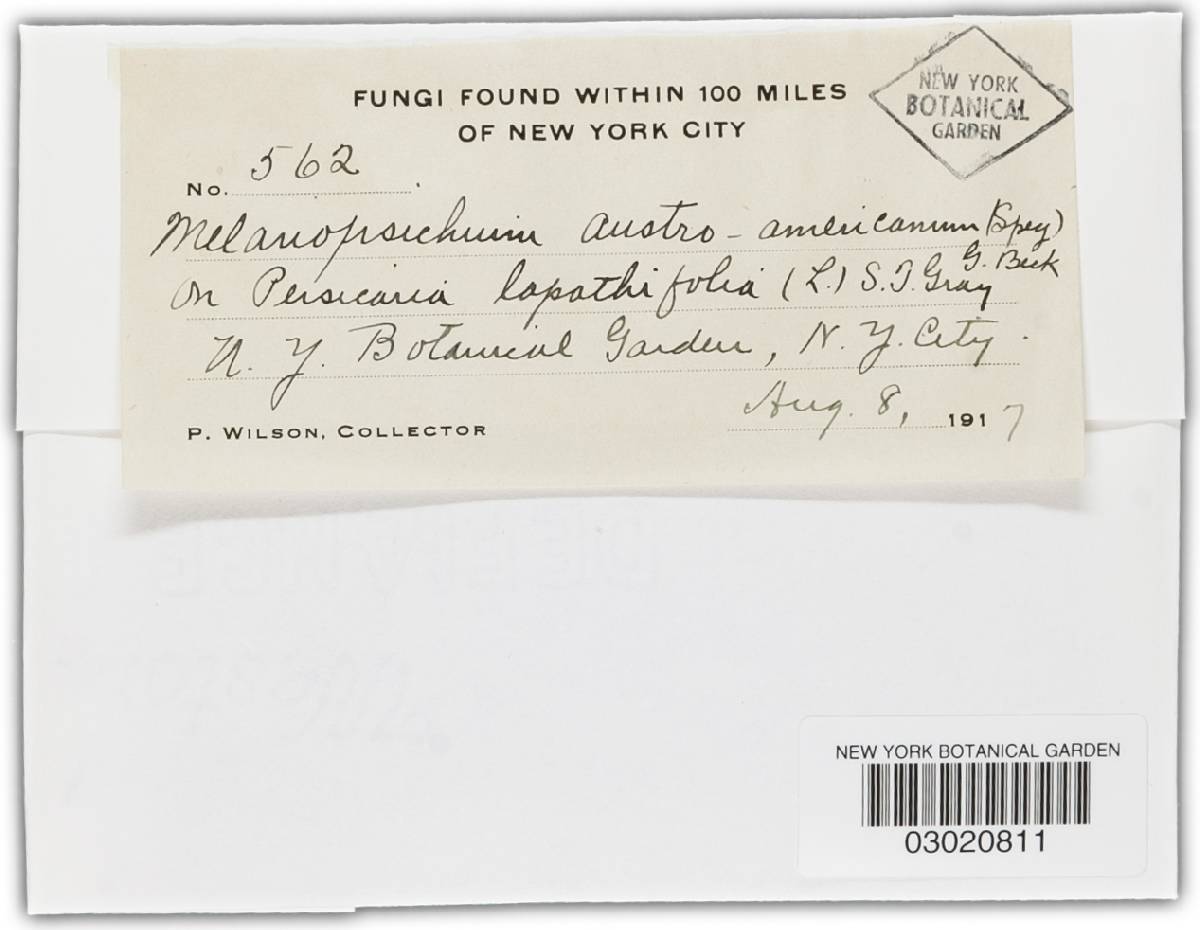 FUNGI FOUND WITHIN 100 MILES
OF NEW YORK CITY
NEW YORK
BOTANICAL
GARDEN
No. 562
Melanopsichium austro-americanum (Speg)
G. Beck
on Persicaria lapathifolia (L.) S.F. Gray
N. Y. Botanical Garden, N. Y. City.
Aug. 8, 1917
P. WILSON, COLLECTOR
NEW YORK BOTANICAL GARDEN
03020811